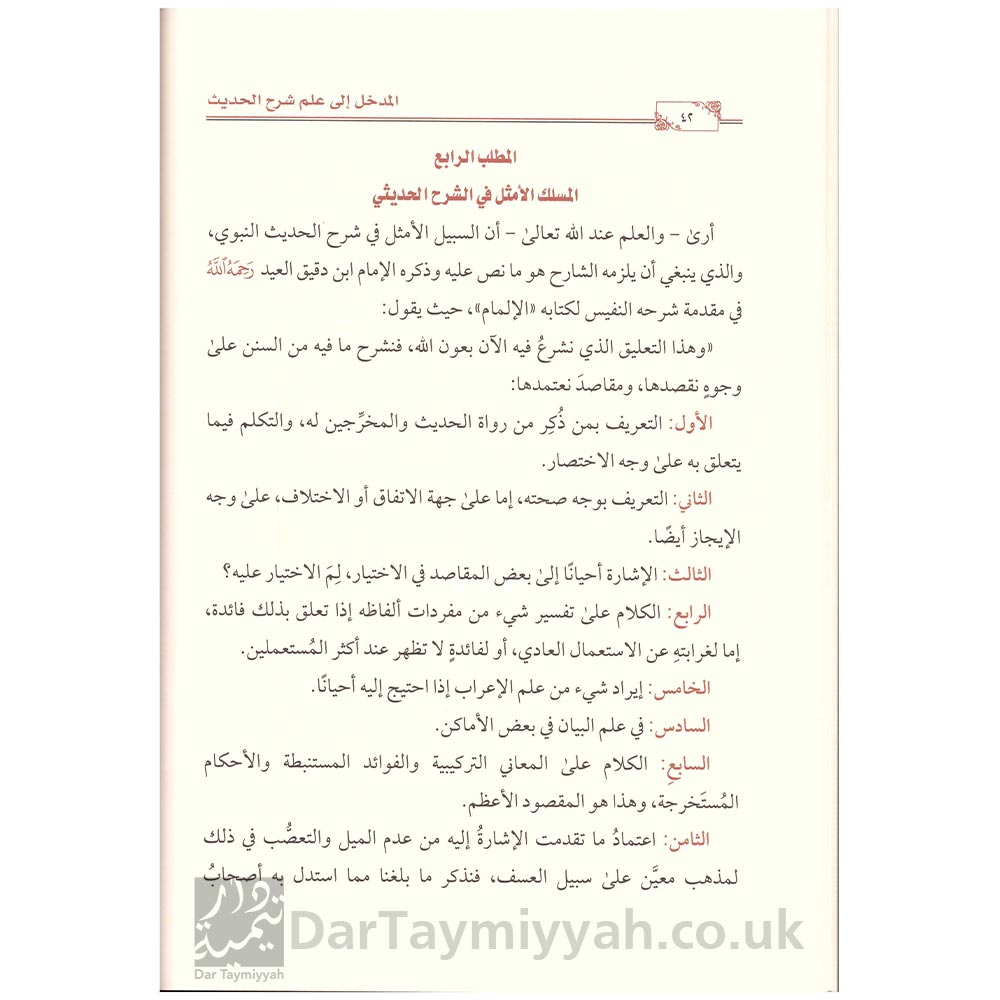 المدخل إلى علم شرح الحديث
٤٢
المطلب الرابع
المسلك الأمثل في الشرح الحديثي
أرىٰ – والعلم عند الله تعالىٰ – أن السبيل الأمثل في شرح الحديث النبوي،
والذي ينبغي أن يلزمه الشارح هو ما نص عليه وذكره الإمام ابن دقيق العيد رَحِمَهُ ٱللَّهُ
في مقدمة شرحه النفيس لكتابه «الإلمام»، حيث يقول:
«وهذا التعليق الذي نشرعُ فيه الآن بعون الله، فنشرح ما فيه من السنن علىٰ
وجوهٍ نقصدها، ومقاصدَ نعتمدها:
الأول: التعريف بمن ذُكِر من رواة الحديث والمخرِّجين له، والتكلم فيما
يتعلق به علىٰ وجه الاختصار.
الثاني: التعريف بوجه صحته، إما علىٰ جهة الاتفاق أو الاختلاف، علىٰ وجه
الإيجاز أيضًا.
الثالث: الإشارة أحيانًا إلىٰ بعض المقاصد في الاختيار، لِمَ الاختيار عليه؟
الرابع: الكلام علىٰ تفسير شيء من مفردات ألفاظه إذا تعلق بذلك فائدة،
إما لغرابتهِ عن الاستعمال العادي، أو لفائدةٍ لا تظهر عند أكثر المُستعملين.
الخامس: إيراد شيء من علم الإعراب إذا احتيج إليه أحيانًا.
السادس: في علم البيان في بعض الأماكن.
السابع: الكلام علىٰ المعاني التركيبية والفوائد المستنبطة والأحكام
المُستَخرجة، وهذا هو المقصود الأعظم.
الثامن: اعتمادُ ما تقدمت الإشارةُ إليه من عدم الميل والتعصُّب في ذلك
لمذهب معيَّن علىٰ سبيل العسف، فنذكر ما بلغنا مما استدل به أصحابُ
دار تيمية
Dar Taymiyyah
DarTaymiyyah.co.uk